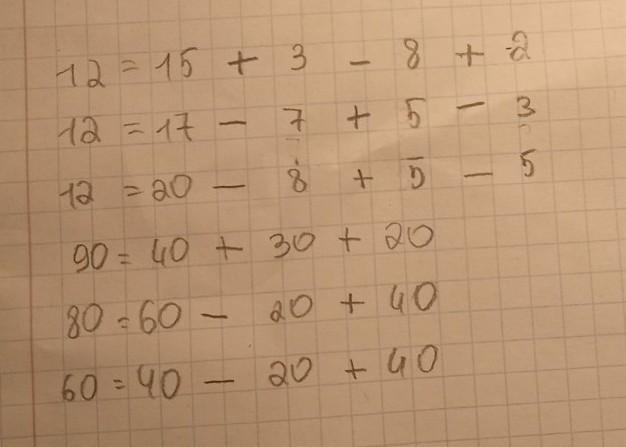 12 = 15 + 3 - 8 + 2
12 = 17 - 7 + 5 - 3
12 = 20 - 8 + 5 - 5
90 = 40 + 30 + 20
80 = 60 - 20 + 40
60 = 40 - 20 + 40